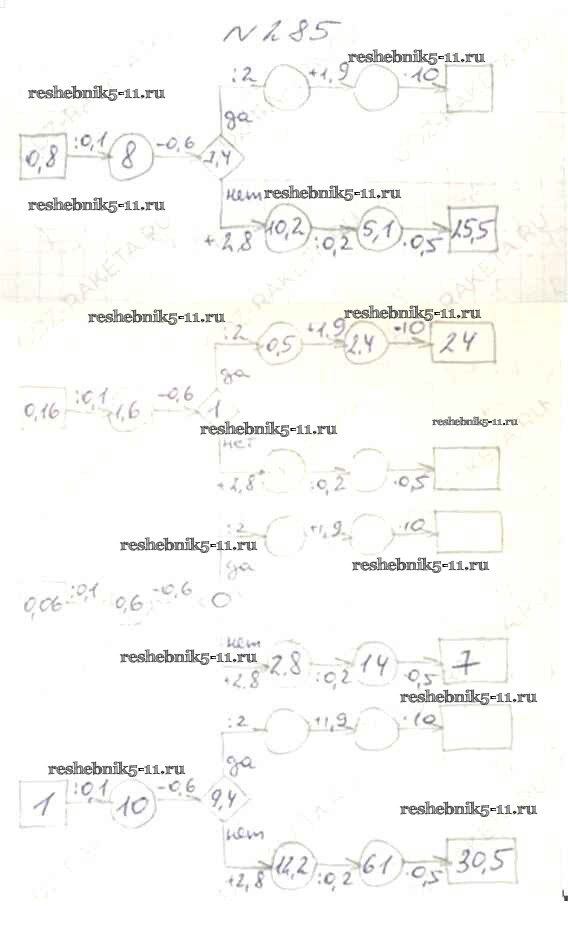 N 285
:2 +1,9 ·10
reshebnik5-11.ru
reshebnik5-11.ru
да
0,8 :0,1 8 -0,6 7,4
reshebnik5-11.ru
нет reshebnik5-11.ru
+2,8 10,2 :0,2 5,1 ·0,5 25,5
reshebnik5-11.ru
reshebnik5-11.ru
:2 0,5 +1,9 2,4 ·10 24
да
0,16 :0,1 1,6 -0,6 1
reshebnik5-11.ru
reshebnik5-11.ru
нет
+2,8 :0,2 ·0,5
:2 +1,9 ·10
reshebnik5-11.ru
reshebnik5-11.ru
да
0,06 :0,1 0,6 -0,6 0
нет
reshebnik5-11.ru
+2,8 2,8 :0,2 14 ·0,5 7
reshebnik5-11.ru
:2 +1,9 ·10
reshebnik5-11.ru
да
1 :0,1 10 -0,6 9,4
reshebnik5-11.ru
нет
+2,8 12,2 :0,2 61 ·0,5 30,5